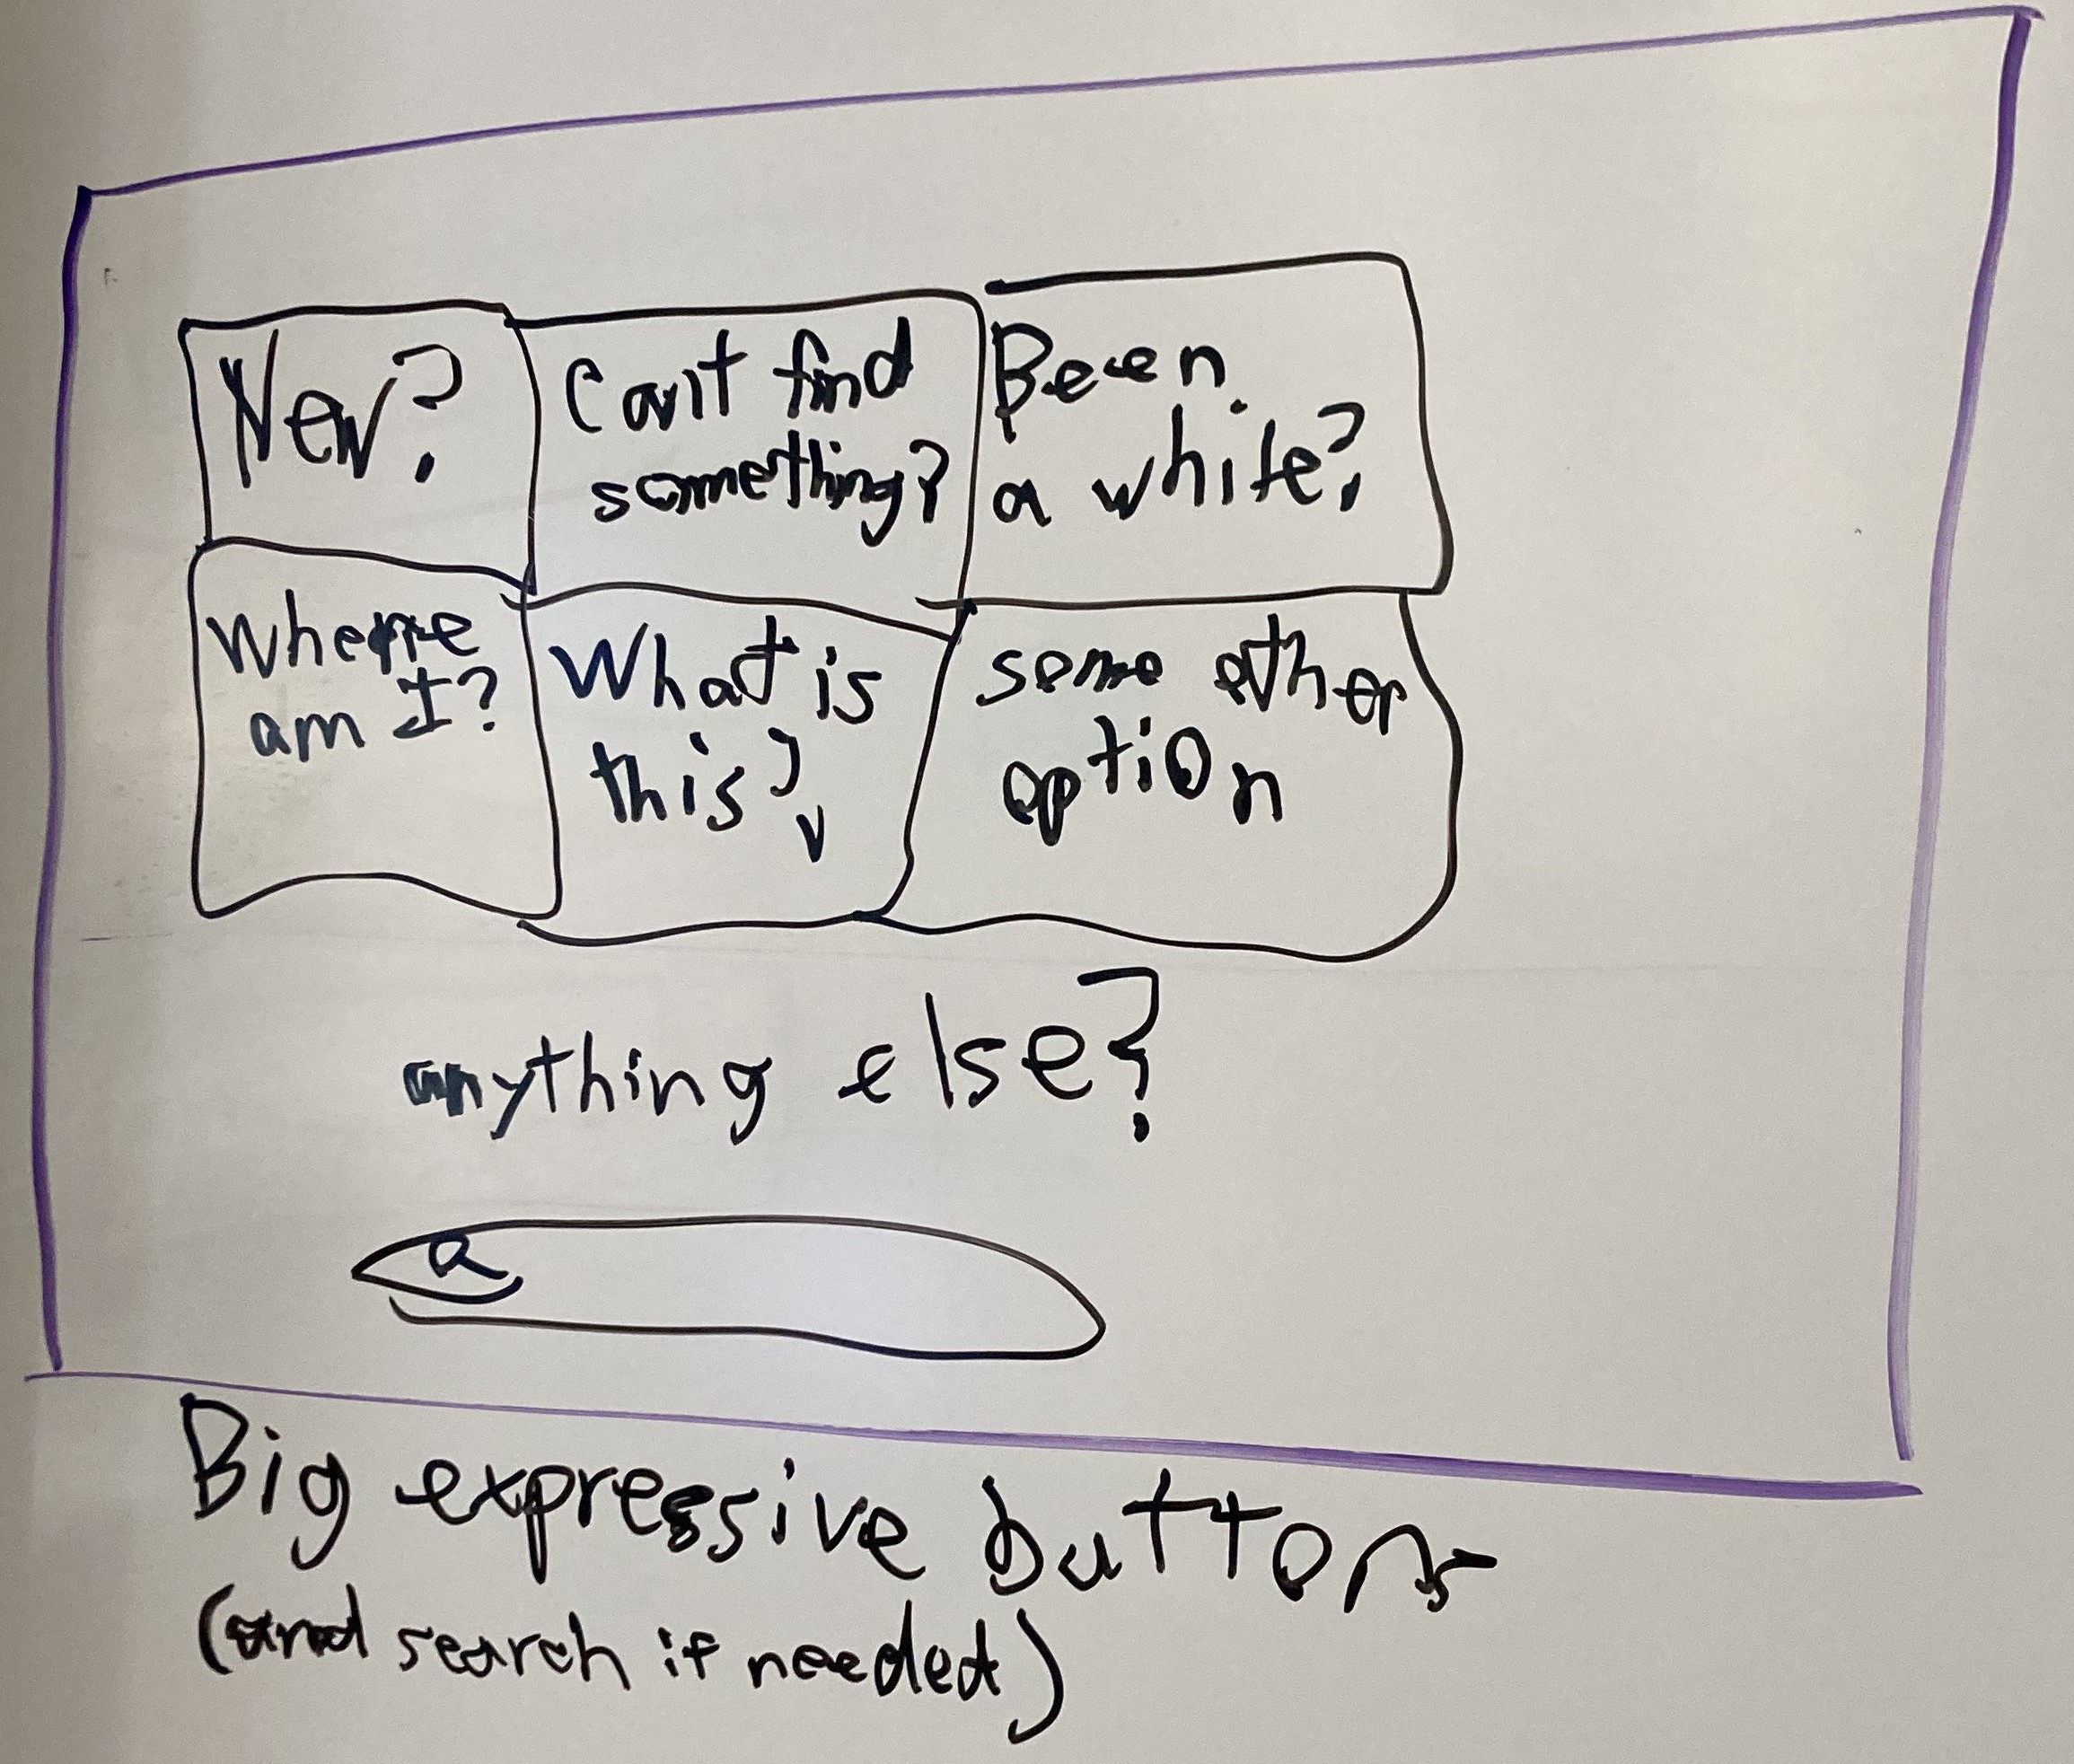 New?
Can't find
something?
Been
a while?
Where
am I?
What is
this?
some other
option
anything else?
Big expressive buttons
(and search if needed)